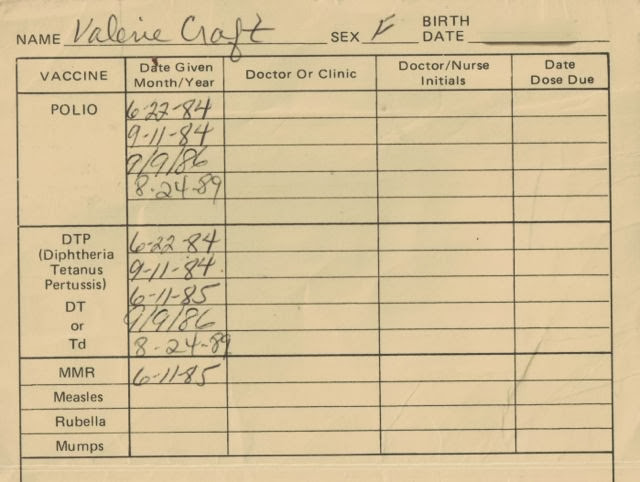 NAME Valerie Craft SEX F BIRTH DATE
VACCINE Date Given Month/Year Doctor Or Clinic Doctor/Nurse Initials Date Dose Due
POLIO 6-22-84
9-11-84
9/9/86
8-24-89
DTP 6-22-84
(Diphtheria 9-11-84
Tetanus
Pertussis) 6-11-85
DT
or 9/9/86
Td 8-24-89
MMR 6-11-85
Measles
Rubella
Mumps